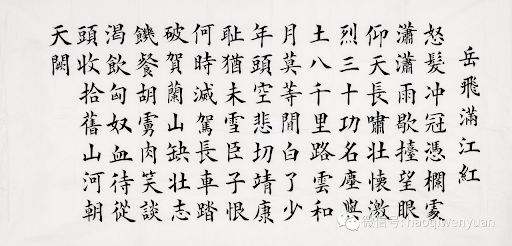 岳飛滿江紅
怒髮冲冠憑欄處
瀟瀟雨歇擡望眼
仰天長嘯壯懷激
烈三十功名塵與
土八千里路雲和
月莫等閒白了少
年頭空悲切靖康
耻猶未雪臣子恨
何時滅駕長車踏
破賀蘭山缺壯志
饑餐胡虜肉笑談
渴飲匈奴血待從
頭收拾舊山河朝
天闕
微信号: haoqiwenyuan